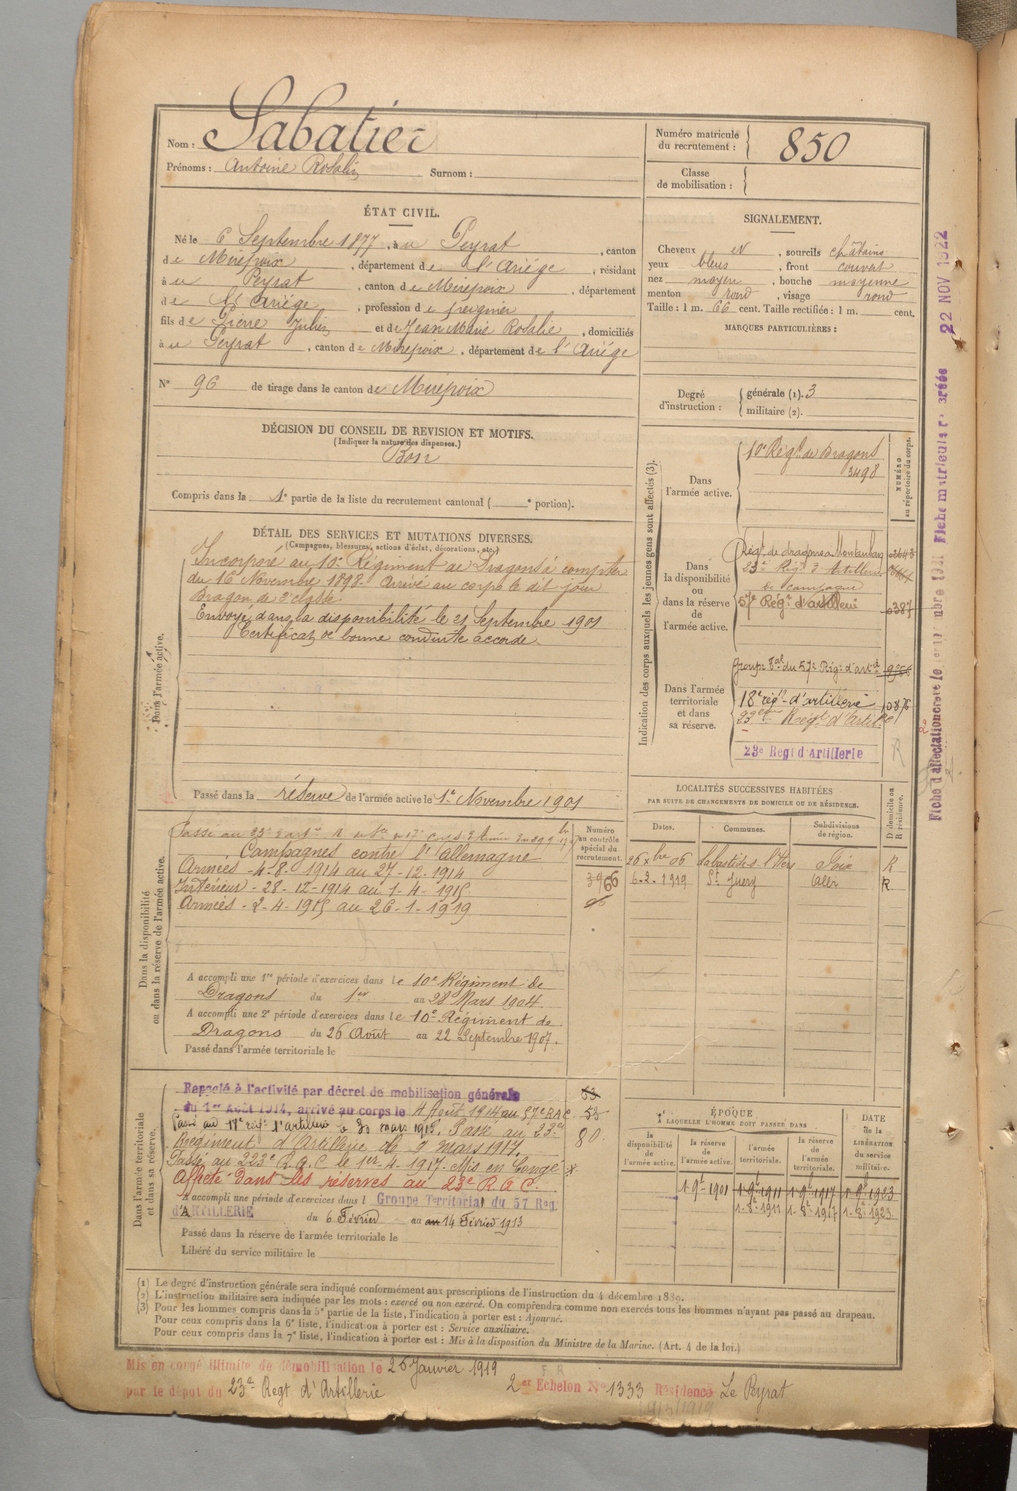 Nom : Sabatier
Prénoms : Antoine Rosalin Surnom :
Numéro matricule du recrutement : 850
Classe de mobilisation :
ÉTAT CIVIL.
Né le 6 Septembre 1877, à Peyrat, canton
de Mirepoix, département de l'Ariège, résidant
à Peyrat, canton de Mirepoix, département
de l'Ariège, profession de
fils de Pierre Julien et de Jean Marie Rosalie, domiciliés
à Peyrat, canton de Mirepoix, département de l'Ariége
N° 96 de tirage dans le canton de Mirepoix
SIGNALEMENT.
Cheveux N, sourcils châtains
yeux bleus, front couvert
nez moyen, bouche moyenne
menton rond, visage rond
Taille : 1 m. 66 cent. Taille rectifiée : 1 m. cent.
MARQUES PARTICULIÈRES :
Degré d'instruction : générale (1). 3
militaire (2).
DÉCISION DU CONSEIL DE REVISION ET MOTIFS.
(Indiquer la nature des dispenses.)
Bon
Compris dans la 1e partie de la liste du recrutement cantonal ( e portion).
DÉTAIL DES SERVICES ET MUTATIONS DIVERSES.
(Campagnes, blessures, actions d'éclat, décorations, etc.)
Dans l'armée active.
Incorporé au 10e Régiment de Dragons à compter
du 16 Novembre 1898. Arrivé au corps le dit jour
Dragon de 2e classe
Envoyé dans la disponibilité le 21 Septembre 1901
Certificat de bonne conduite accordé
Passé dans la réserve de l'armée active le 1e Novembre 1901
Indication des corps auxquels les jeunes gens sont affectés (3).
NUMÉRO au répertoire du corps.
Dans l'armée active.
10e Régt de Dragons
3498
Dans la disponibilité ou dans la réserve de l'armée active.
Régt de dragons Montauban
23e Régt d'Artillerie
de Campagne
57e Régt d'artillerie 0387
Dans l'armée territoriale et dans sa réserve.
Groupe Tal du 57e Régt d'artie
18e régt d'artillerie
23e Régt d'Artie
23e Regt d'Artillerie
R
LOCALITÉS SUCCESSIVES HABITÉES
PAR SUITE DE CHANGEMENTS DE DOMICILE OU DE RÉSIDENCE.
Dates. Communes. Subdivisions de région. D domicile ou R résidence.
Foix R
6-2-1919 St Juery Albi R
Dans la disponibilité ou dans la réserve de l'armée active.
Numéro au contrôle spécial du recrutement.
3966
Campagnes contre l'allemagne
Armées - 4-8-1914 au 27-12-1914
Intérieur - 28-12-1914 au 1-4-1915
Armées - 2-4-1915 au 26-1-1919
A accompli une 1re période d'exercices dans le 10e Régiment de
Dragons du 1er au 28 Mars 1904.
A accompli une 2e période d'exercices dans le 10e Régiment de
Dragons du 26 Août au 22 Septembre 1907.
Passé dans l'armée territoriale le
Dans l'armée territoriale et dans sa réserve.
Rappelé à l'activité par décret de mobilisation générale
du 1er Août 1914, arrivé au corps le 4 Août 1914 au 57e RAC
Passé au 18e régt d'artillerie le 30 mars 1915. Passé au 23e
Régiment d'Artillerie le 9 mars 1917.
Passé au 223e R.A.C le 1er-4-1917. Mis en Congé
Affecté dans les réserves au 23e R.A.C.
53
53
80
A accompli une période d'exercices dans l Groupe Territorial du 57 Reg.
d'ARTILLERIE du 6 Février au 14 Février 1913
Passé dans la réserve de l'armée territoriale le
Libéré du service militaire le
ÉPOQUE
À LAQUELLE L'HOMME DOIT PASSER DANS
la disponibilité de l'armée active.
la réserve de l'armée active.
l'armée territoriale.
la réserve de l'armée territoriale.
DATE de la LIBÉRATION du service militaire.
1-9e-1901 1-9e-1911 1-9e-1917 1-9e-1923
1-8e-1911 1-8e-1917 1-8e-1923
(1) Le degré d'instruction générale sera indiqué conformément aux prescriptions de l'instruction du 4 décembre 1889.
(2) L'instruction militaire sera indiquée par les mots : exercé ou non exercé. On comprendra comme non exercés tous les hommes n'ayant pas passé au drapeau.
(3) Pour les hommes compris dans la 5e partie de la liste, l'indication à porter est : Ajourné.
Pour ceux compris dans la 6e liste, l'indication à porter est : Service auxiliaire.
Pour ceux compris dans la 7e liste, l'indication à porter est : Mis à la disposition du Ministre de la Marine. (Art. 4 de la loi.)
Mis en congé illimité de démobilisation le 26 Janvier 1919
par le dépôt du 23e Regt d'Artillerie
2er Echelon N° 1333 Résidence Le Peyrat
22 NOV 1922